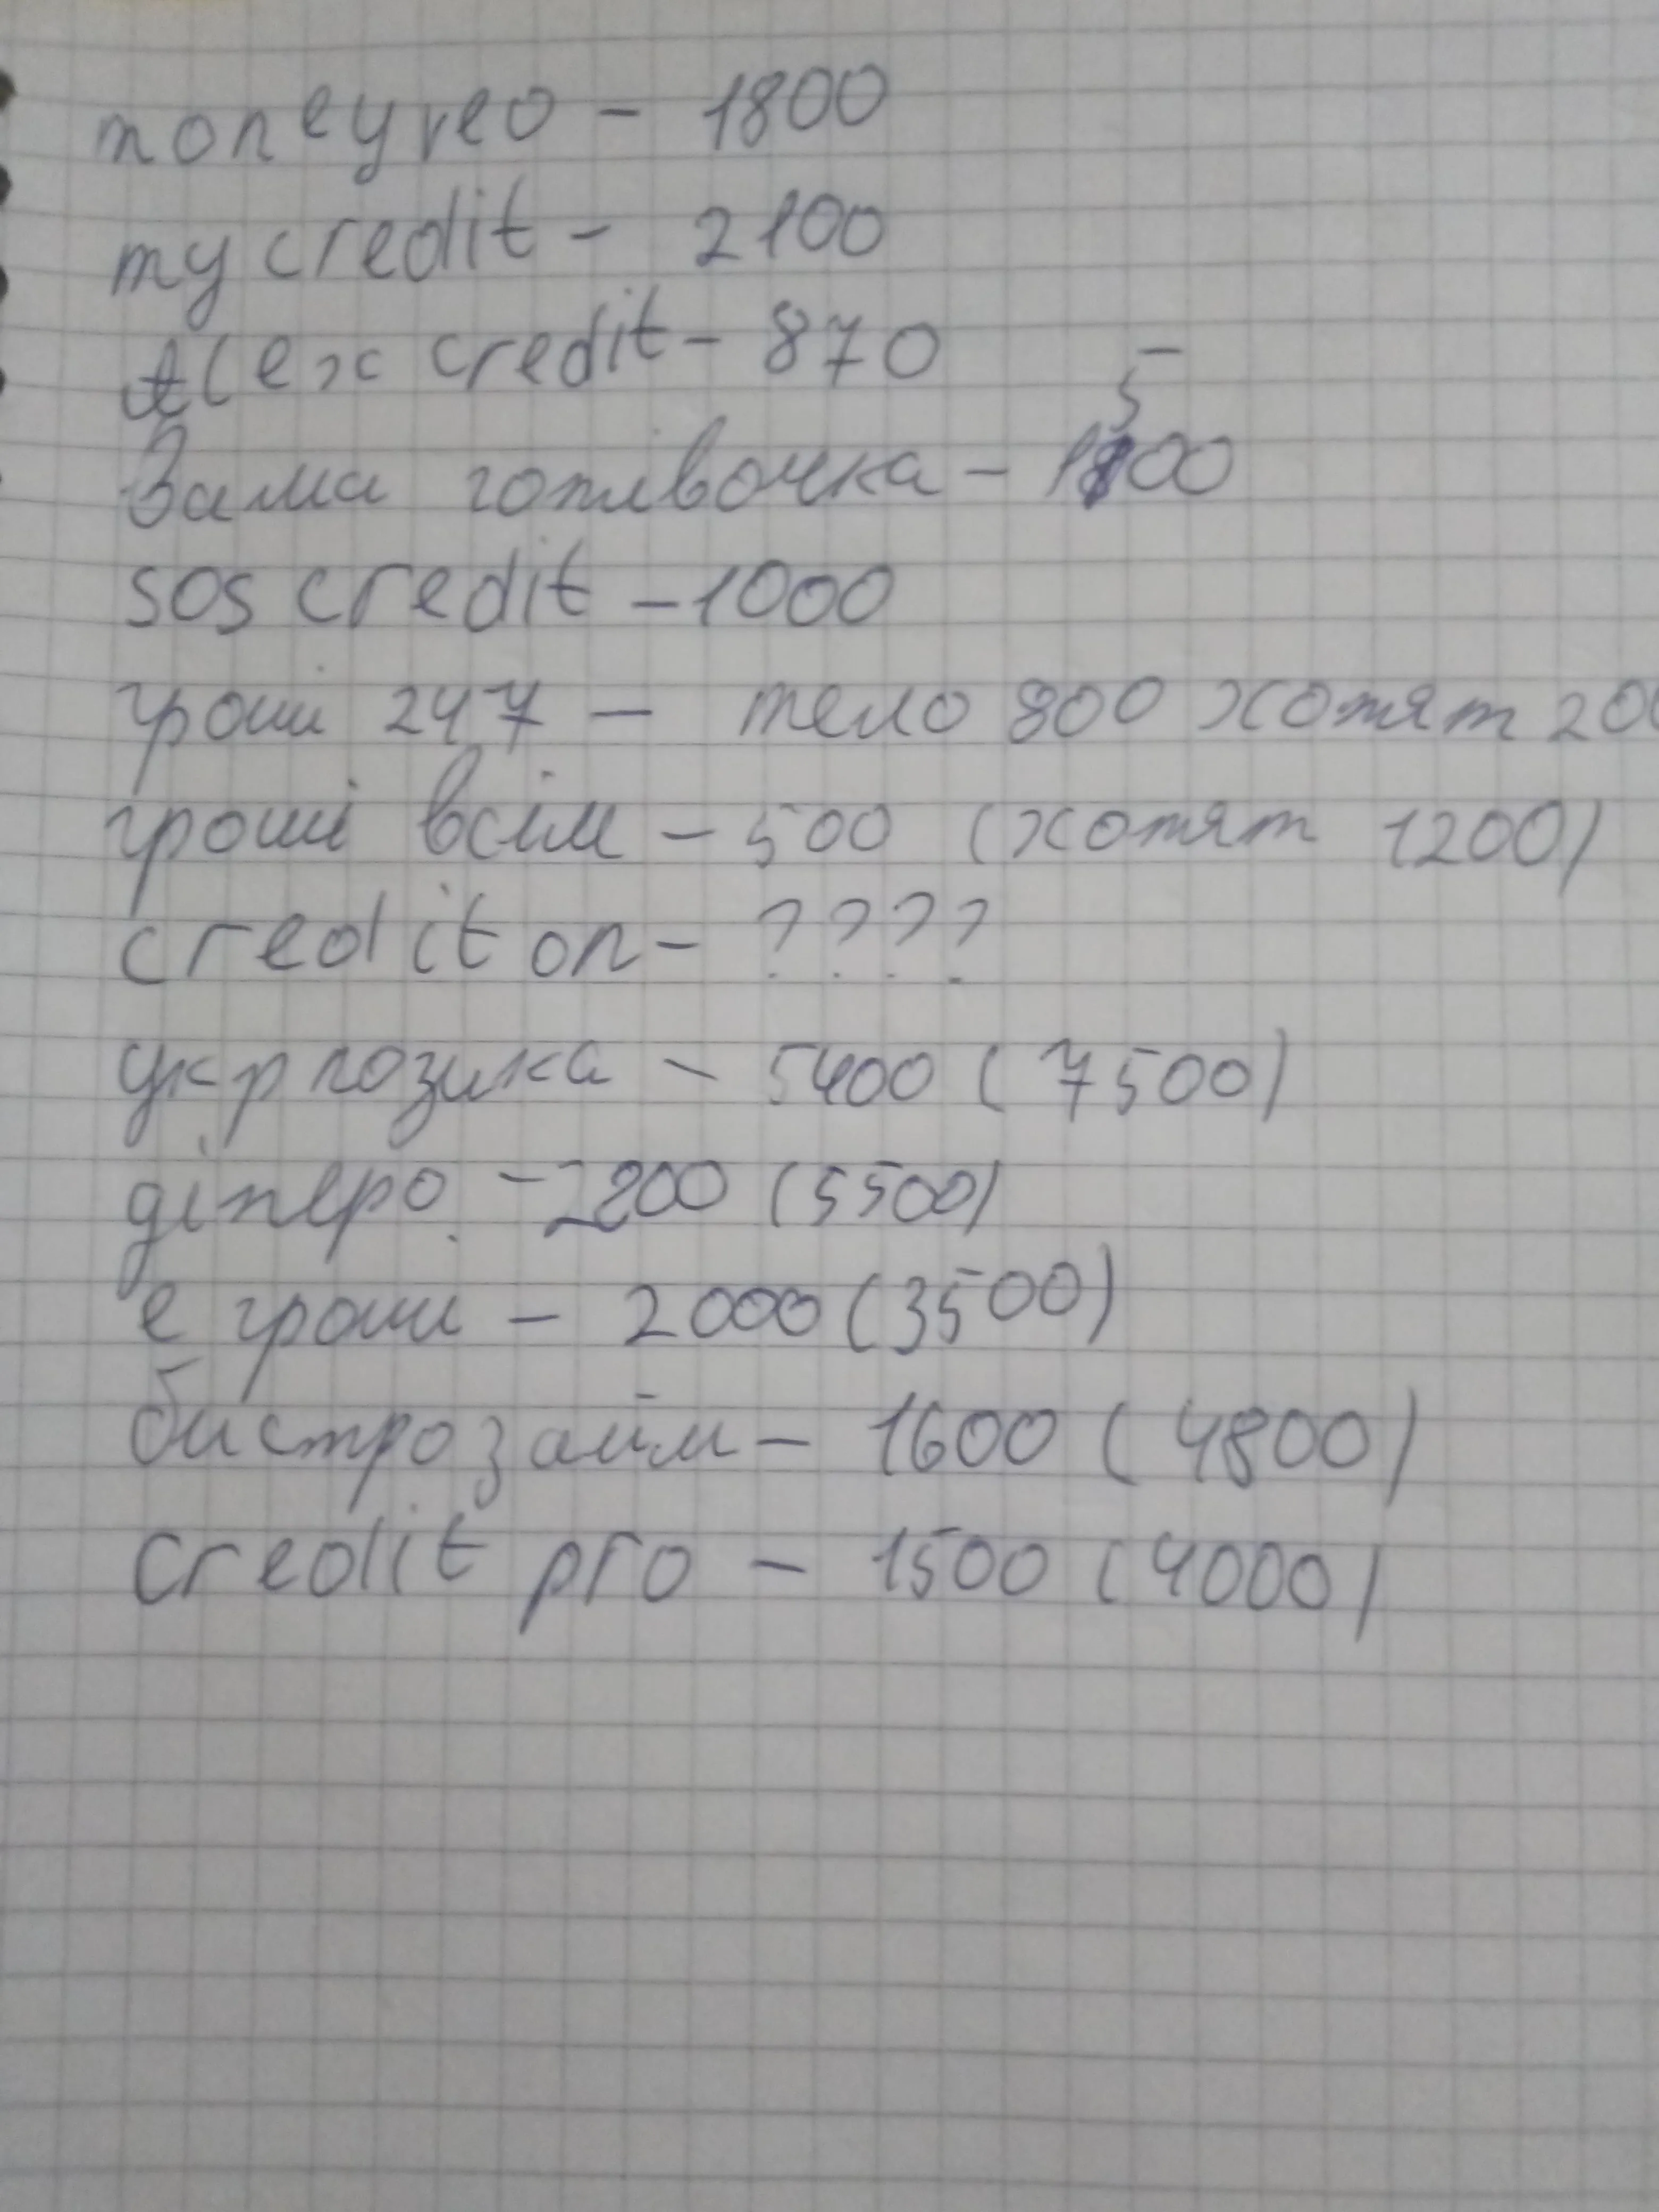 moneyveo - 1800
my credit - 2100
Alex credit - 870
Вама готівочка - 1500
sos credit - 1000
гроші 247 - тело 800 хотят 200
гроші всім - 500 (хотят 1200)
credit on - ????
укрпозика - 5400 (7500)
діперо - 2800 (5500)
е гроши - 2000 (3500)
быстрозайм - 1600 (4800)
credit pro - 1500 (4000)